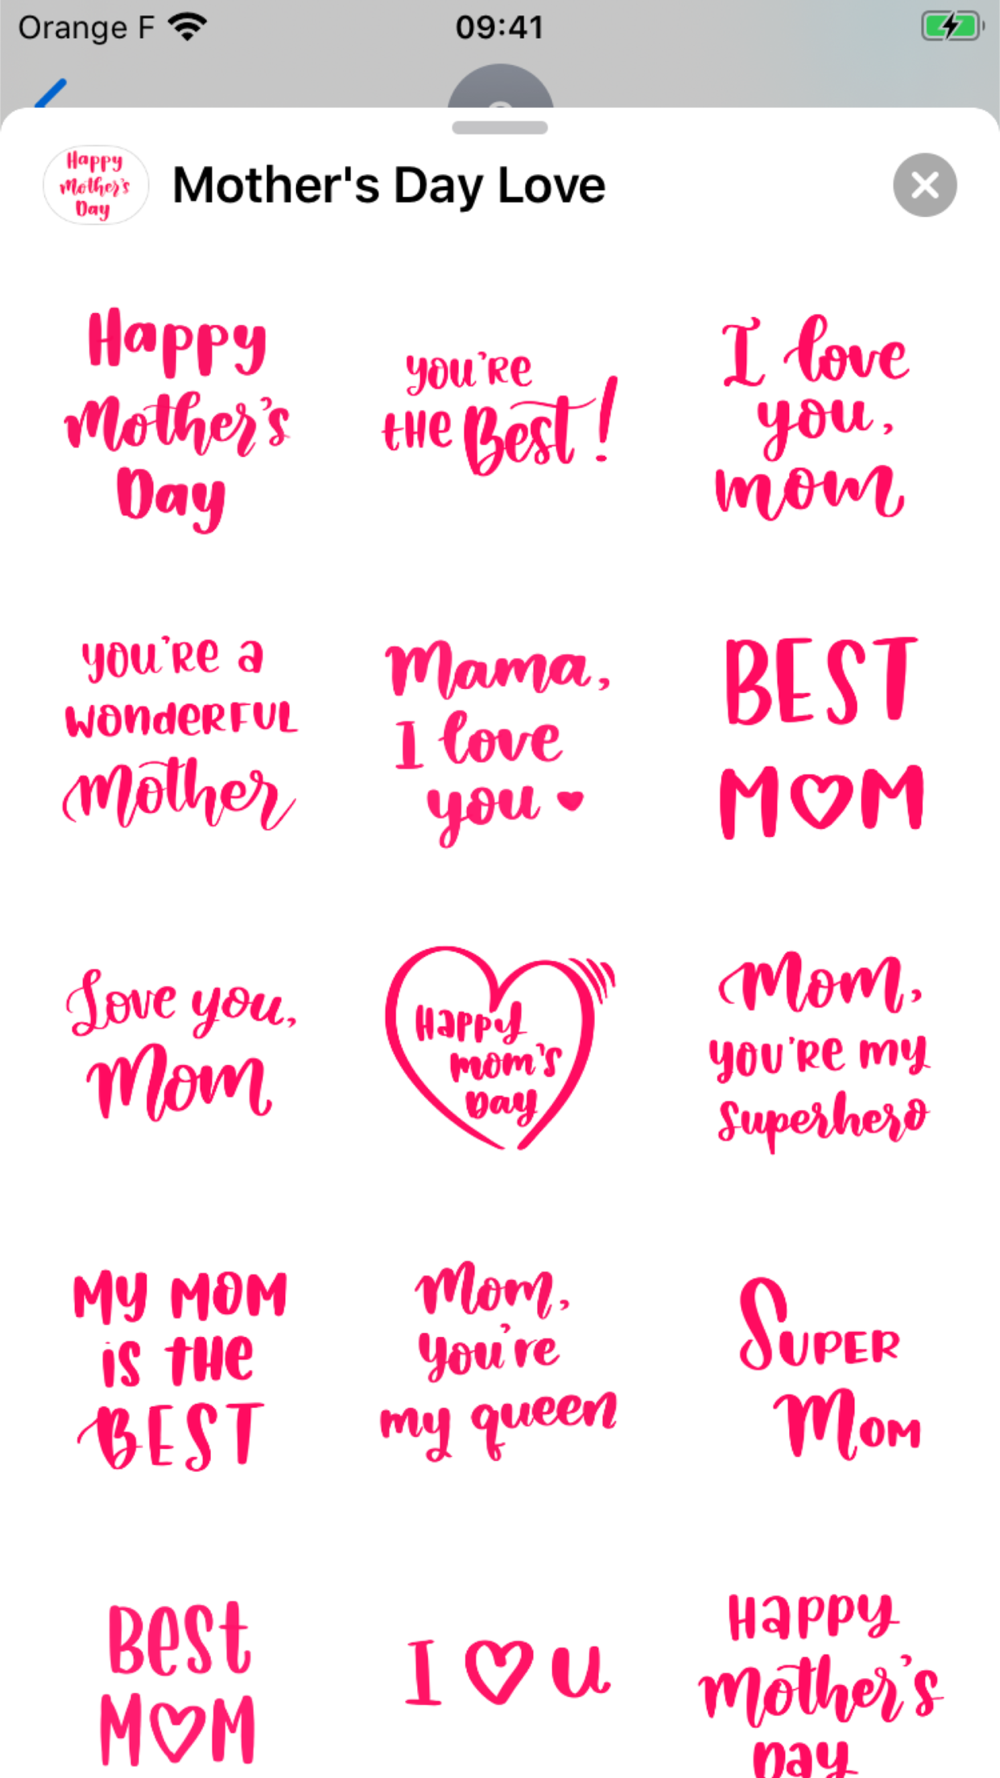 Orange F 09:41
Happy
Mother's
Day
Mother's Day Love
Happy
Mother's
Day
you're
the Best!
I love
you,
mom
you're a
wonderful
Mother
Mama,
I love
you
BEST
M♡M
Love you,
Mom
Happy
mom's
Day
Mom,
you're my
superhero
My MOM
is the
BEST
Mom,
you're
my queen
SUPER
MOM
Best
M♡M
I ♡ u
Happy
Mother's
Day